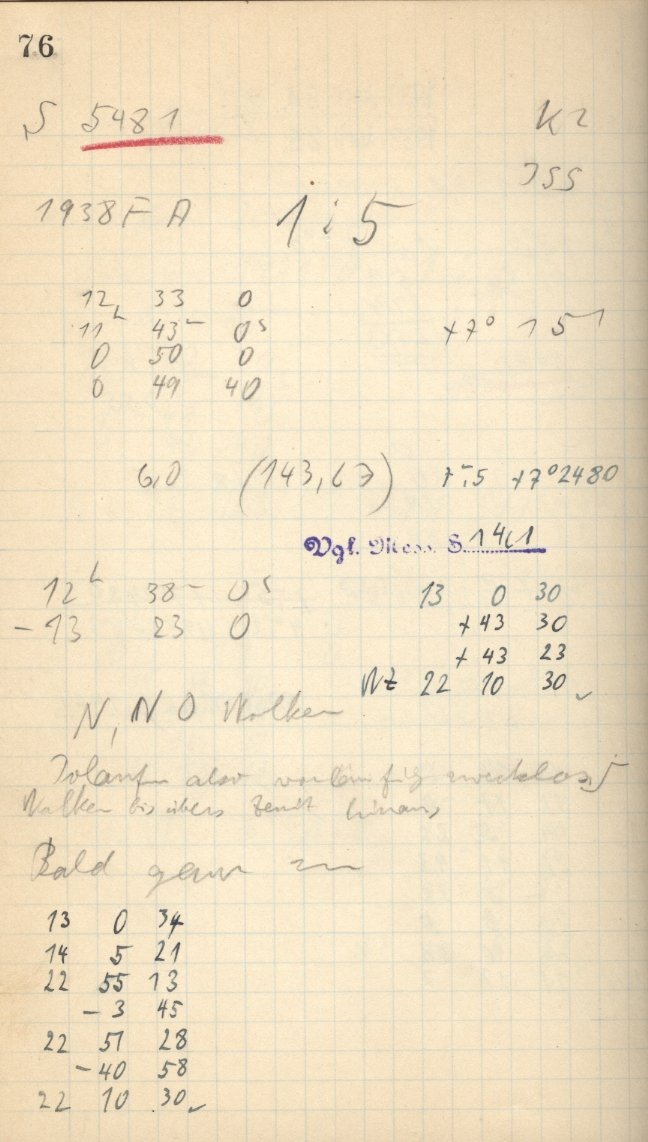 76
S 5481
K2
1938 F A
1 : 5
12 33 0
11h 43m 0s
+7° 15 1
0 50 0
0 49 40
6,0 (143,67) +7°2480
Vgl. Mess. S. 141
12h 38m 0s
- 13 23 0
13 0 30
+ 43 30
+ 43 23
22 10 30
N, NO Wolken
also vorläufig zwecklos
Wolken bis übers Zenit hinaus
Bald ganz zu
13 0 34
14 5 21
22 55 13
- 3 45
22 51 28
- 40 58
22 10 30